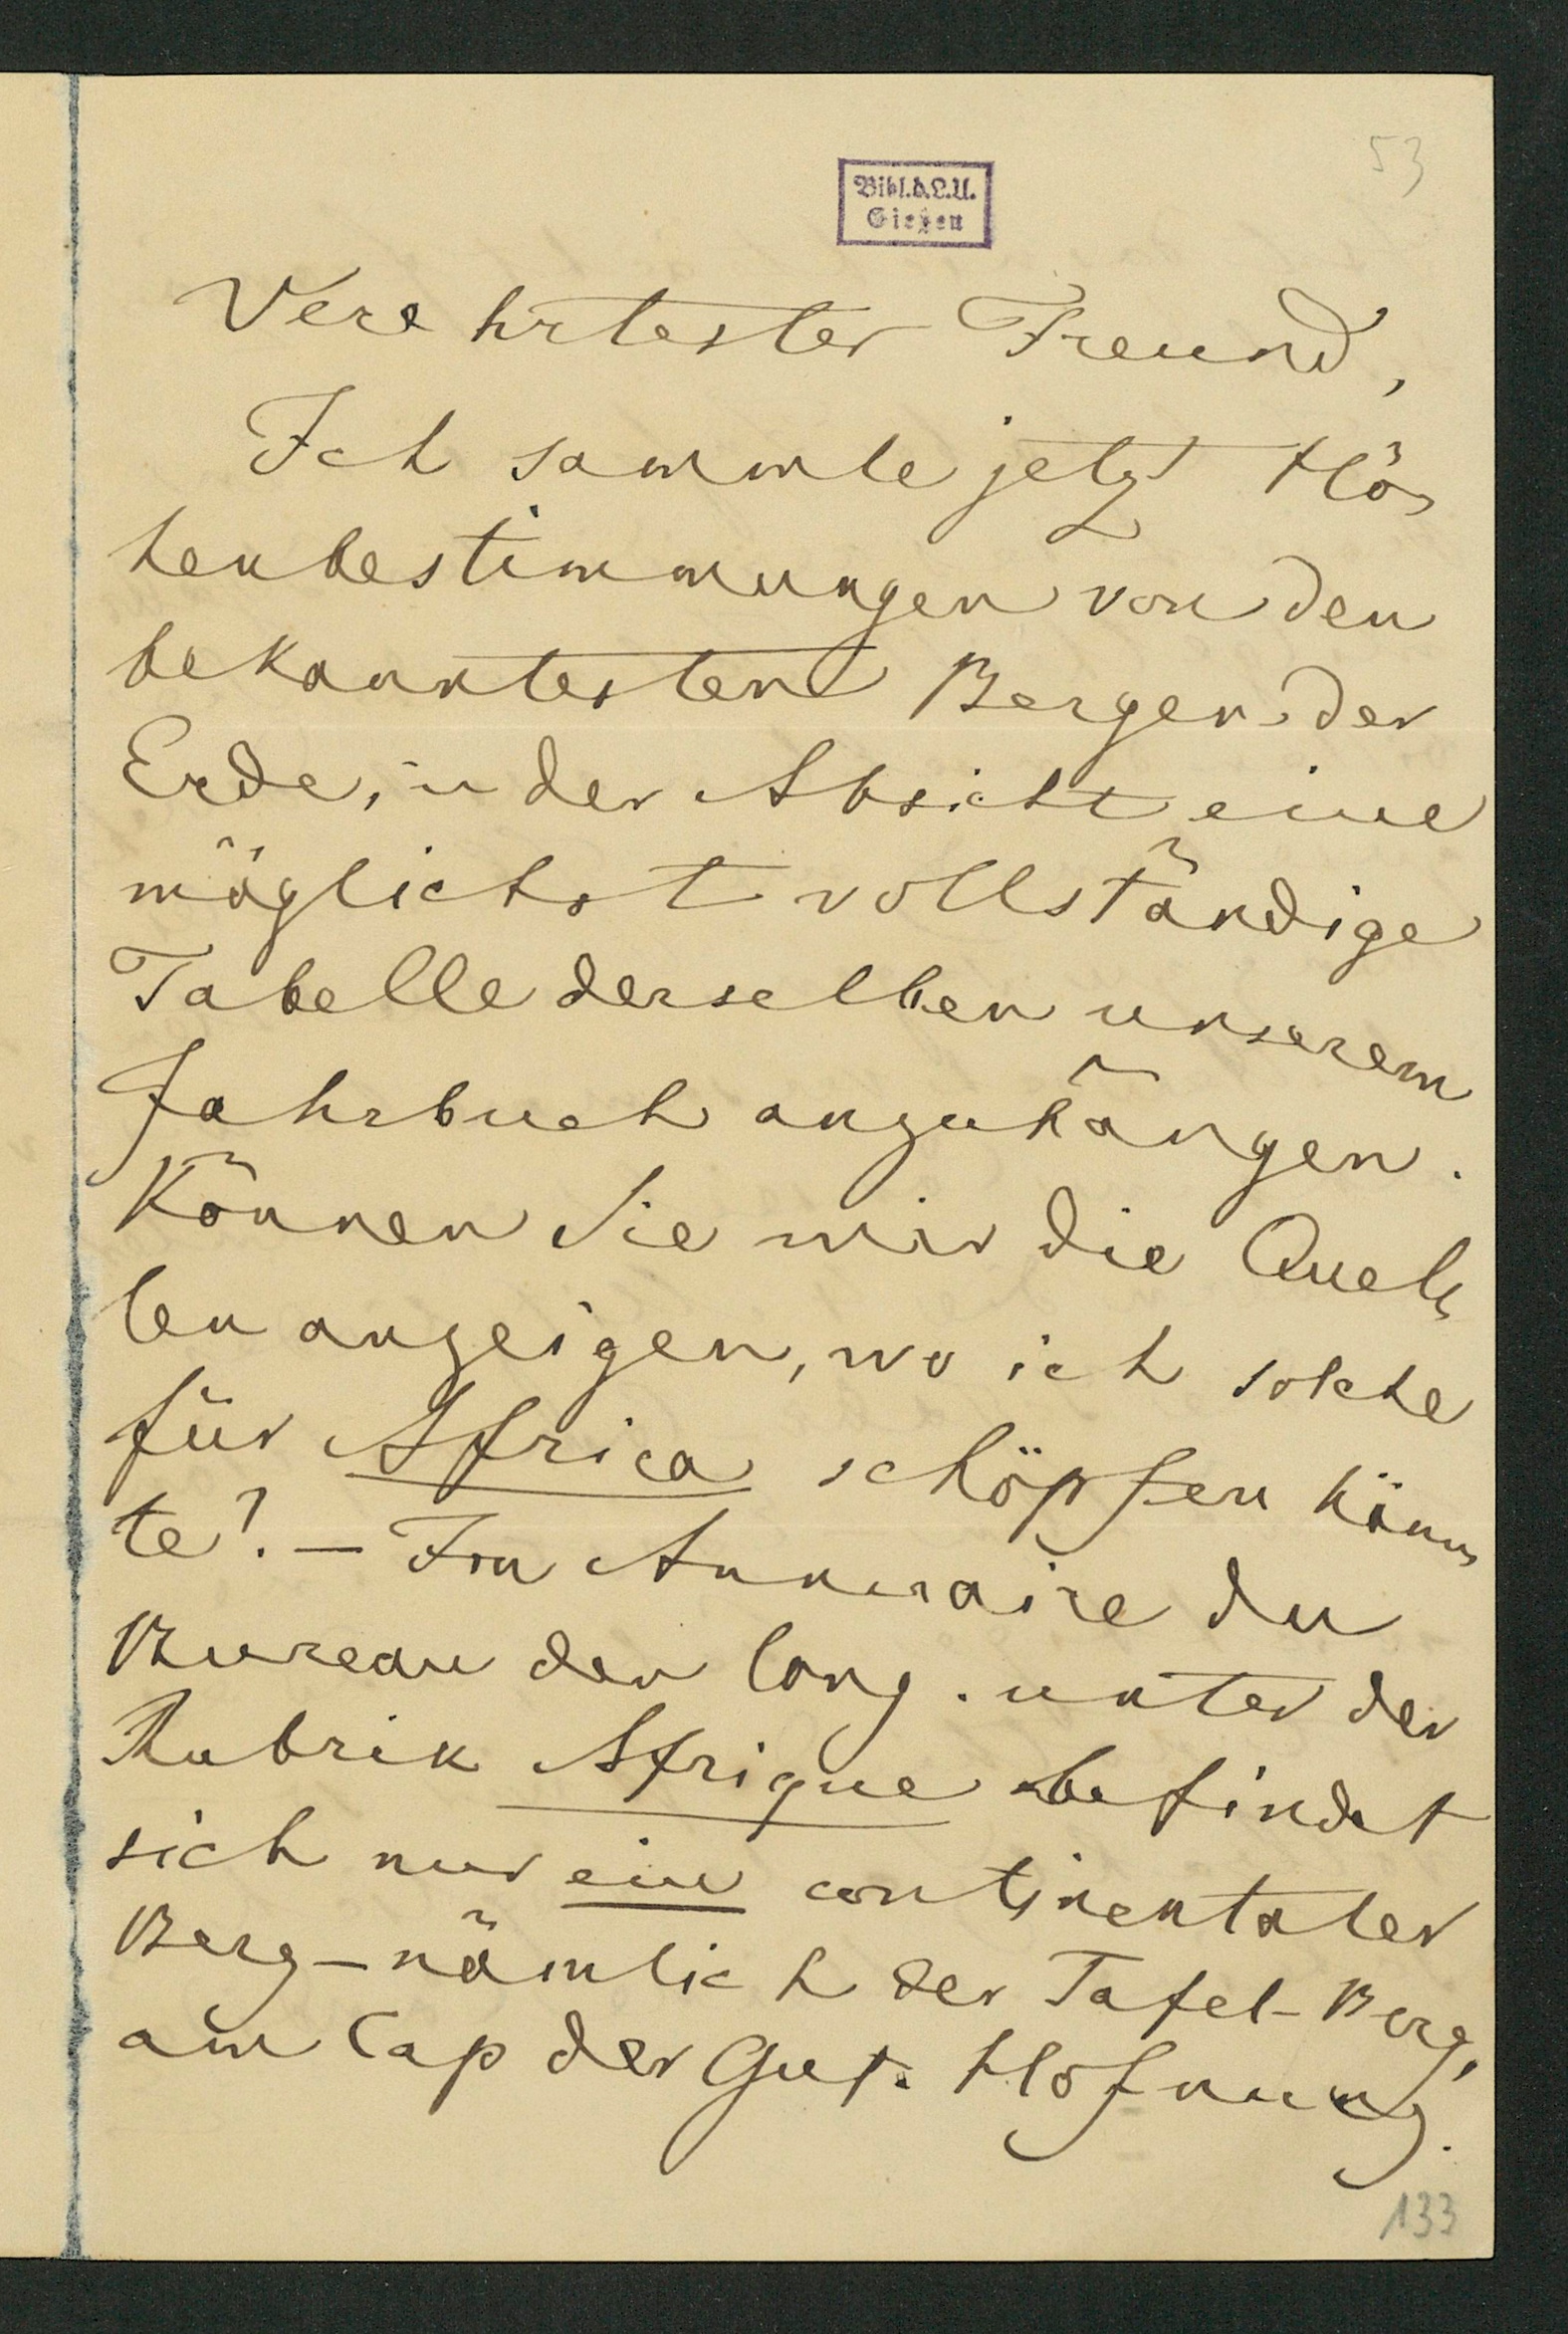 53
Bibl.d.L.U.
Gießen
Verehrtester Freund,
Ich sammle jetzt Hö-
henbestimmungen von den
bekanntesten Bergen der
Erde, in der Absicht eine
möglichst vollständige
Tabelle derselben unserem
Jahrbuch anzuhängen.
Können Sie mir die Quel-
len anzeigen, wo ich solche
für Africa schöpfen könn-
te? – Im Annuaire du
Bureau des long. unter der
Rubrik Afrique befindet
sich nur ein continentaler
Berg – nämlich der Tafel-Berg,
am Cap der Gut. Hofnung.
133